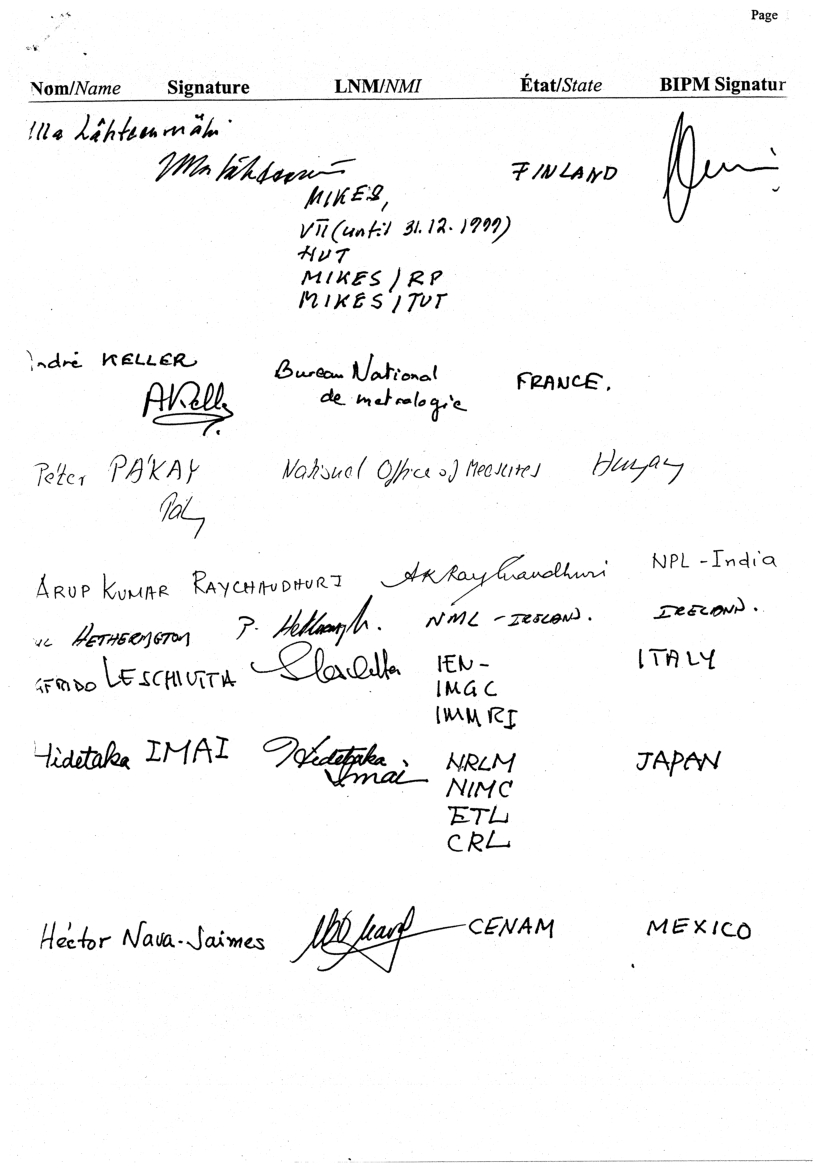 Page
Nom/Name Signature LNM/NMI État/State BIPM Signatur
Ulla Lähteenmäki
FINLAND
MIKES,
VTT (until 31.12.1999)
HUT
MIKES / RP
MIKES / TUT
André KELLER Bureau National FRANCE.
AKelle de metrologie
Péter PÁKAY National Office of Measures Hungary
ARUP KUMAR RAYCHAUDHURI AK Raychaudhuri NPL - India
HETHERINGTON P. Hetherington. NML - IRELAND. IRELAND.
LESCHIUTTA IEN - ITALY
IMGC
IMMRI
Hidetaka IMAI Hidetaka Imai NRLM JAPAN
NIMC
ETL
CRL
Héctor Nava-Jaimes CENAM MEXICO